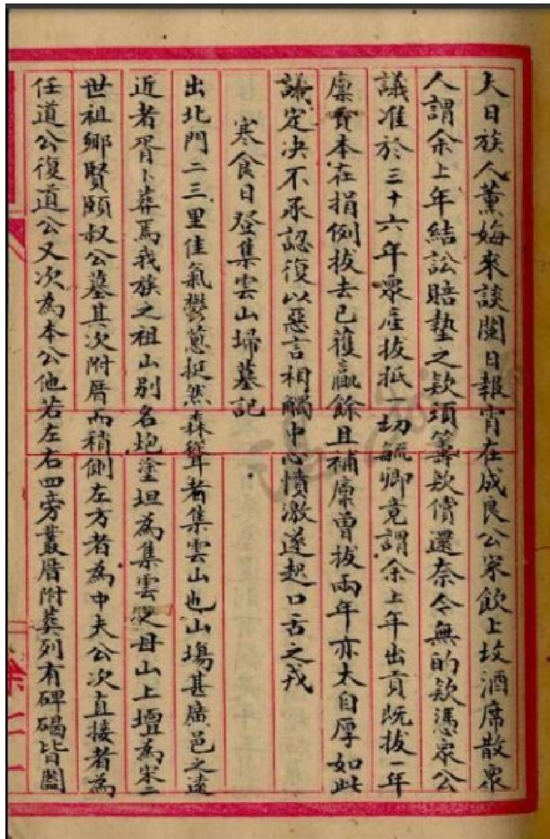 大日族人薰梅來談閱日報宵在成良公家飲上坟酒席散衆
人謂余上年結訟賠墊之欵項籌欵償還奈今無的欵憑衆公
議准於三十六年衆産拔抵一切毓卿竟謂余上年出貢既拔一年
廩賓本在捐例拔去已獲贏餘且補廩曾拔兩年亦太自厚如此
議定决不承認復以惡言相觸中心憤激遂起口舌之戎
寒食日登集雲山埽墓記
出北門二三里佳氣鬱蔥挺然森聳者集雲山也山塲甚廣邑之遠
近者胥卜葬焉我族之祖山别名垉塗坦為集雲之母山上壇為宋二
世祖鄉賢頤叔公墓其次附厝而稍側左方者為中夫公次直接者為
任道公復道公又次為本公他若左右四旁叢厝附葬列有碑碣皆圖